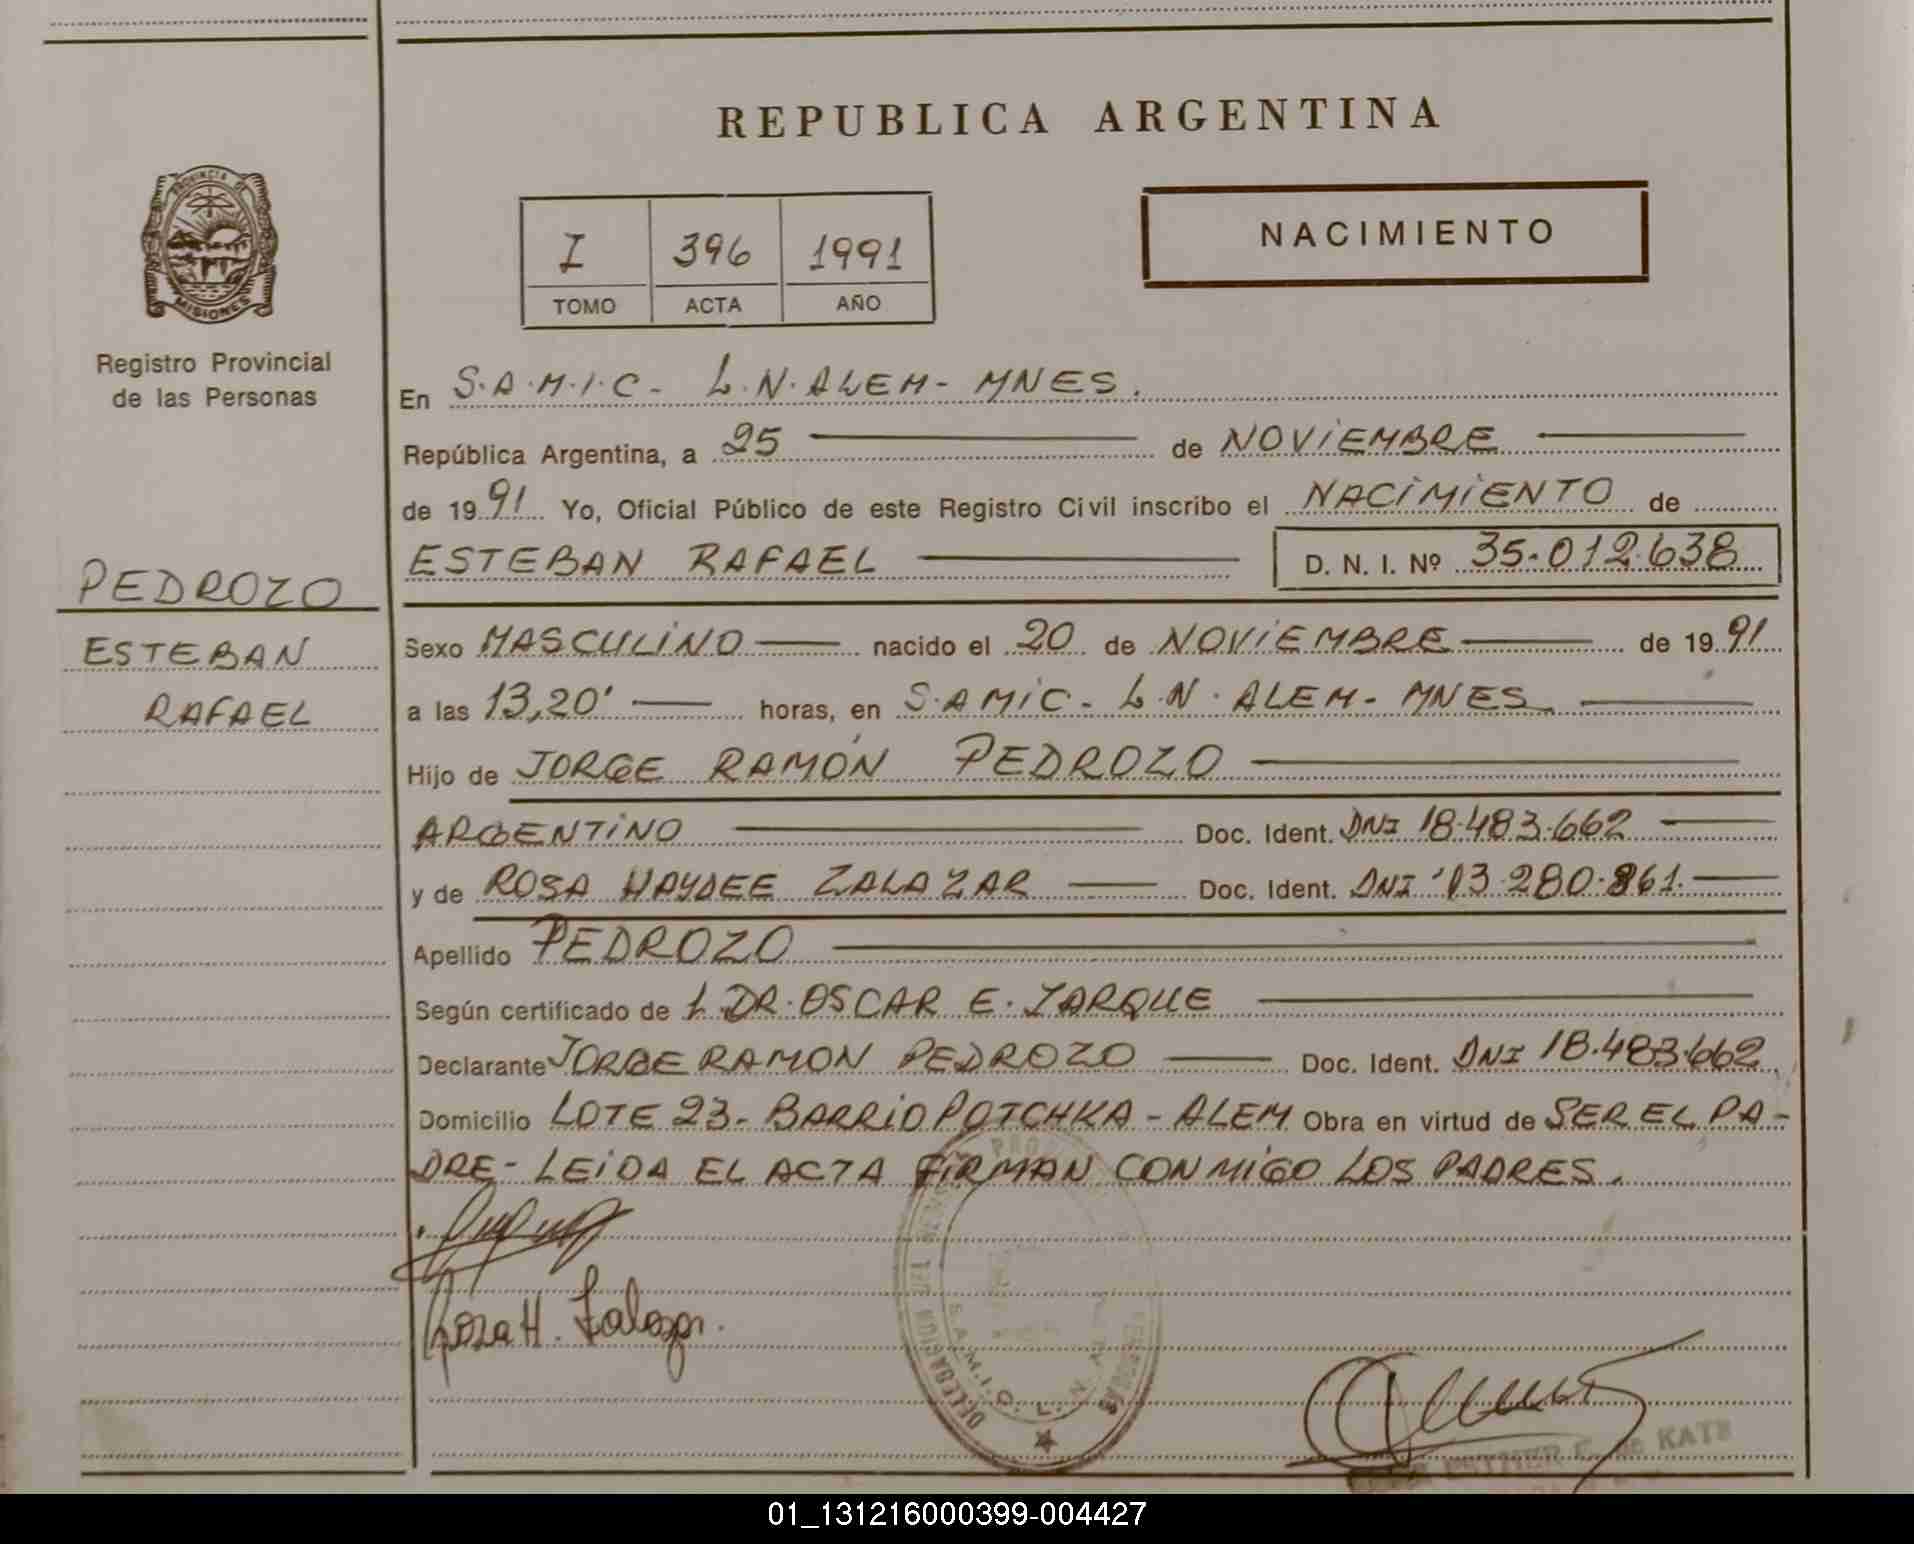 REPUBLICA ARGENTINA
PROVINCIA DE
MISIONES
Registro Provincial
de las Personas
I 396 1991
TOMO ACTA AÑO
NACIMIENTO
En S.A.M.I.C- L.N.ALEM- MNES.
República Argentina, a 25 de NOVIEMBRE
de 1991 Yo, Oficial Público de este Registro Civil inscribo el NACIMIENTO de
ESTEBAN RAFAEL D. N. I. Nº 35.012.638
PEDROZO
ESTEBAN
RAFAEL
Sexo MASCULINO nacido el 20 de NOVIEMBRE de 1991
a las 13,20' horas, en S.AMIC- L.N. ALEM- MNES
Hijo de JORGE RAMÓN PEDROZO
ARGENTINO Doc. Ident. DNI 18.483.662
y de ROSA HAYDEE ZALAZAR Doc. Ident. DNI 13.280.861.
Apellido PEDROZO
Según certificado de L DR. OSCAR E. JARQUE
Declarante JORGE RAMON PEDROZO Doc. Ident. DNI 18.483.662
Domicilio LOTE 23- BARRIO POTCHKA - ALEM Obra en virtud de SER EL PA-
DRE- LEIDA EL ACTA FIRMAN CONMIGO LOS PADRES.
Rosa H. Zalazar.
DELEGACION
S.A.M.I.C. L.N.
ESTHER E. de KATZ
01_131216000399-004427